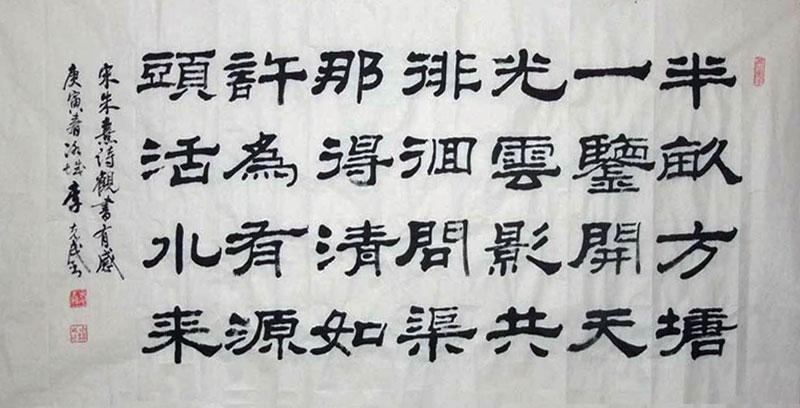 半畝方塘
一鑒開天
光雲影共
徘徊問渠
那得清如
許為有源
頭活水来
宋朱熹詩觀書有感
庚寅春洛城李